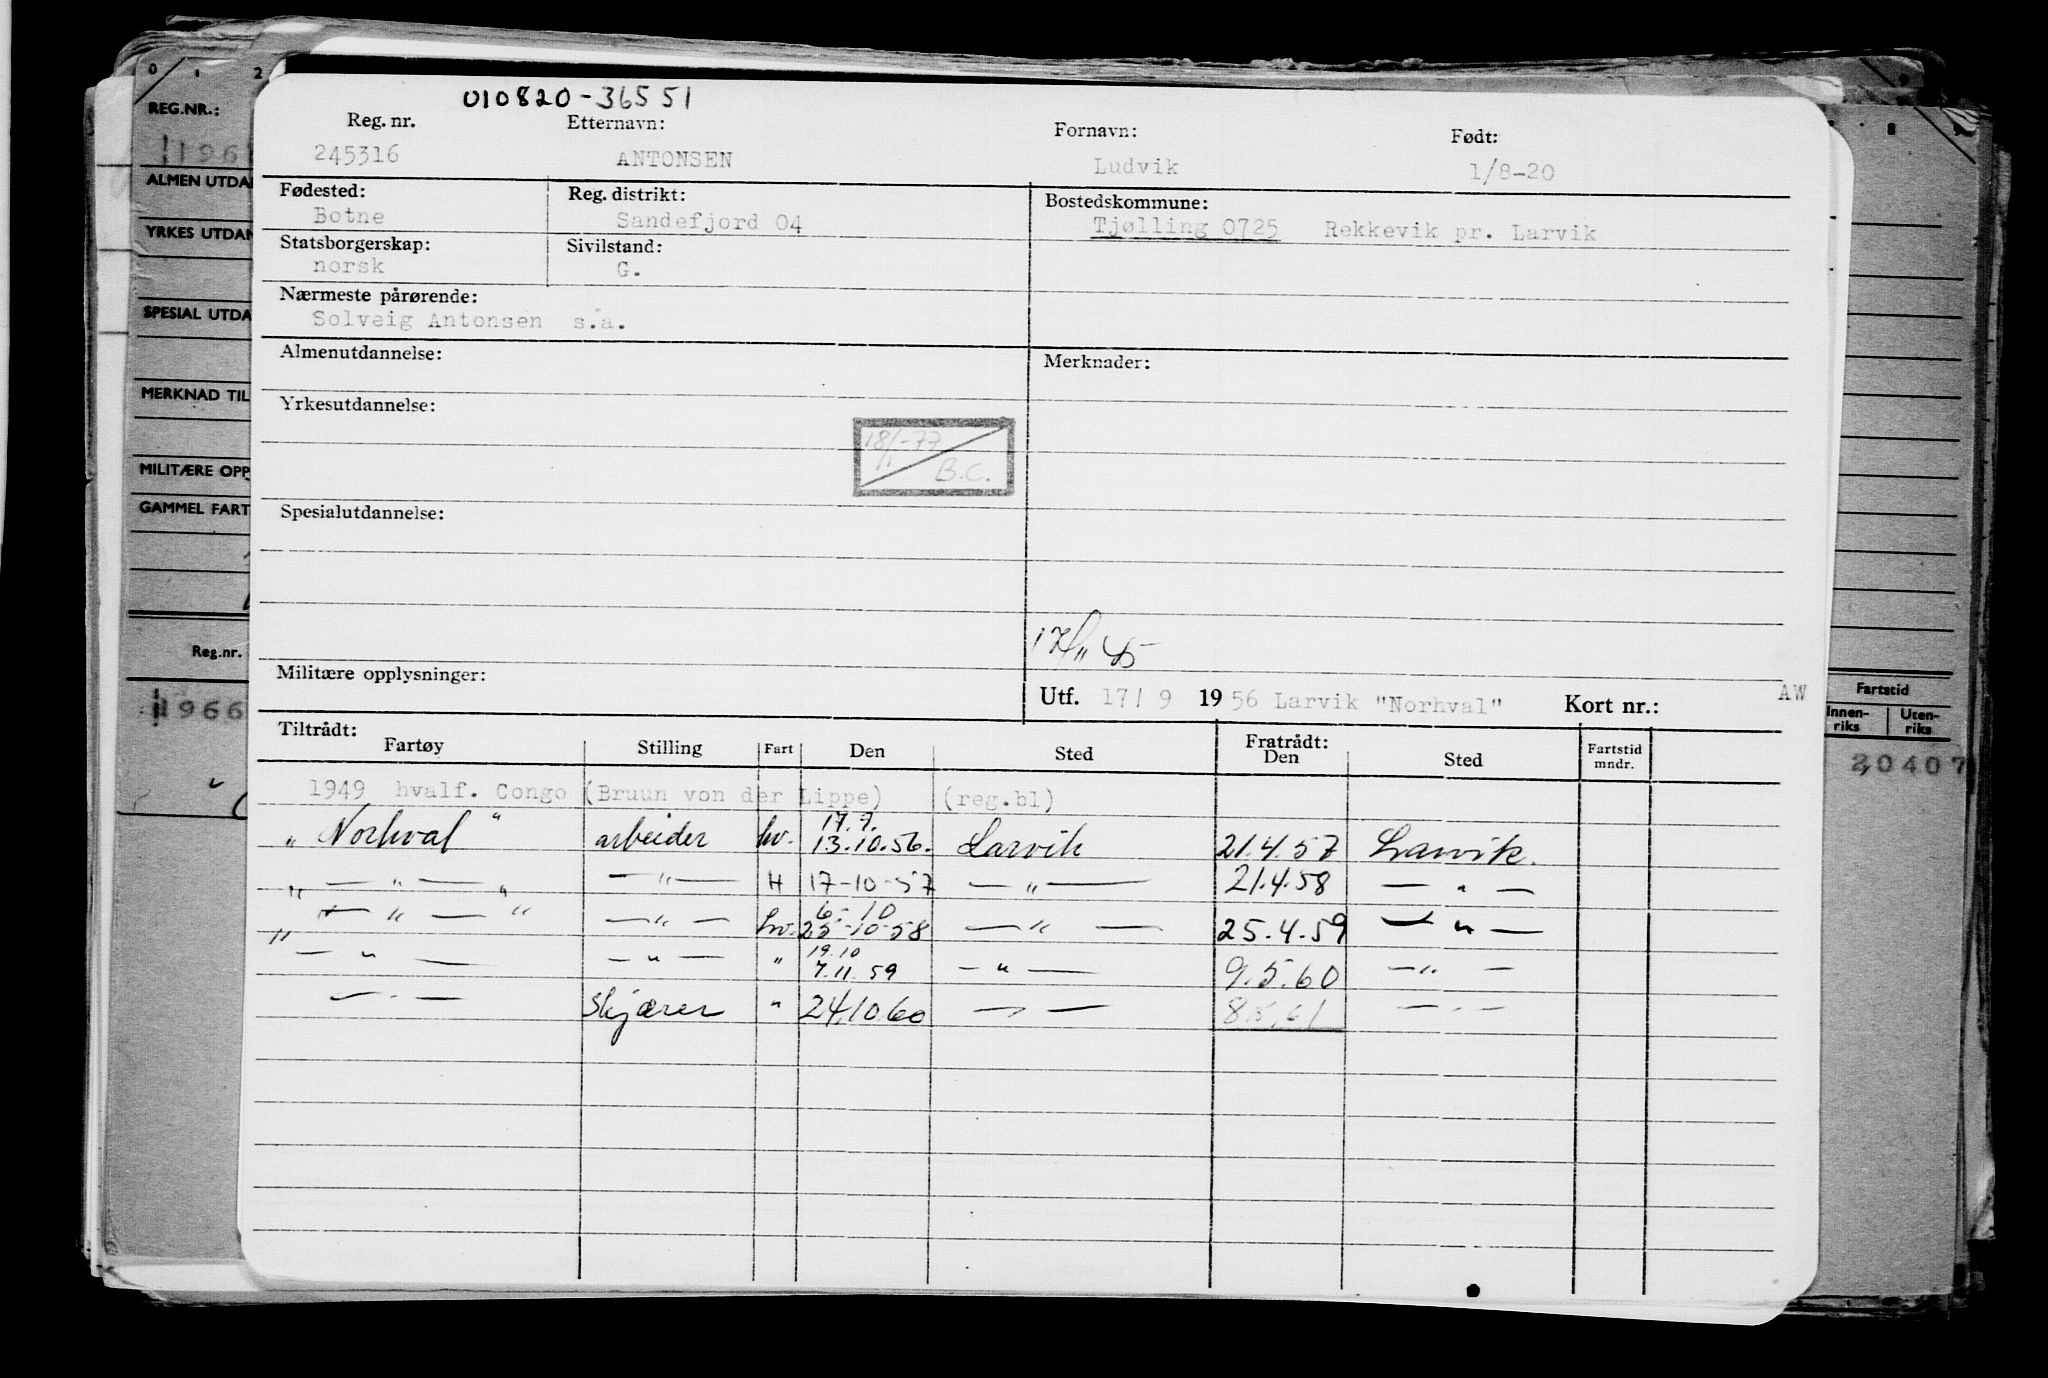 010820-36551
Reg. nr. Etternavn: Fornavn: Født:
245316 ANTONSEN Ludvik 1/8-20
Fødested: Reg. distrikt: Bostedskommune:
Botne Sandefjord 04 Tjølling 0725 Rekkevik pr. Larvik
Statsborgerskap: Sivilstand:
norsk G.
Nærmeste pårørende:
Solveig Antonsen s.a.
Almenutdannelse: Merknader:
Yrkesutdannelse:
18/1-77
B.C.
Spesialutdannelse:
Militære opplysninger:
Utf. 17/ 9 1956 Larvik "Norhval" Kort nr.: AW
Tiltrådt: Fratrådt:
Fartøy Stilling Fart Den Sted Den Sted Fartstid mndr.
1949 hvalf. Congo (Bruun von der Lippe) (reg.bl)
17.9.
"Norhval" arbeider hv. 13.10.56. Larvik 21.4.57 Larvik.
" — " — " — " — H 17-10-57 — " — 21.4.58 — " —
6-10
" — " — " — " — hv. 25-10-58 — " — 25.4.59 — " —
19.10
— " — — " — " 7.11.59 — " — 9.5.60 — " —
— " — Skjærer " 24.10.60 — " — 8.5.61 — " —
0 1 2
REG.NR.:
ALMEN UTDA
YRKES UTDAN
SPESIAL UTDA
MERKNAD TIL
MILITÆRE OPP
GAMMEL FART
Reg.nr.
1966
Fartstid
Innen-riks Uten-riks
20407